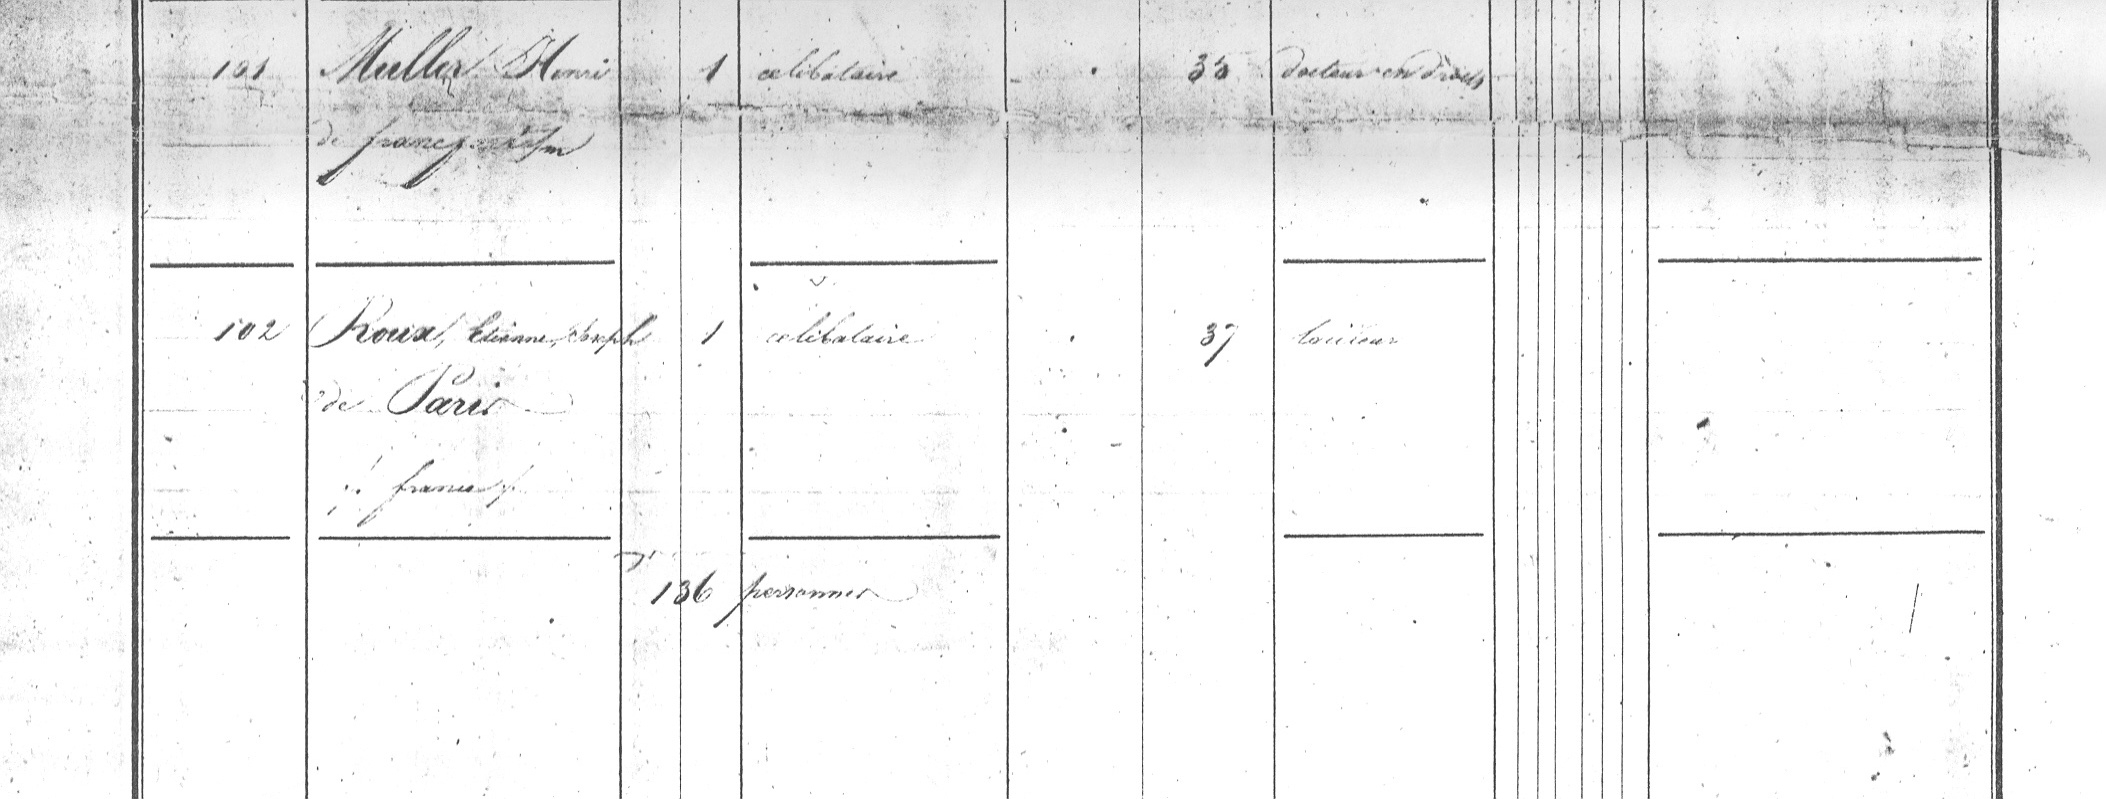 101 Muller Henri 1 celibataire 35 docteur en droit
de
102 Roux, Etienne, Joseph 1 celibataire 37
de Paris
france
136 personnes